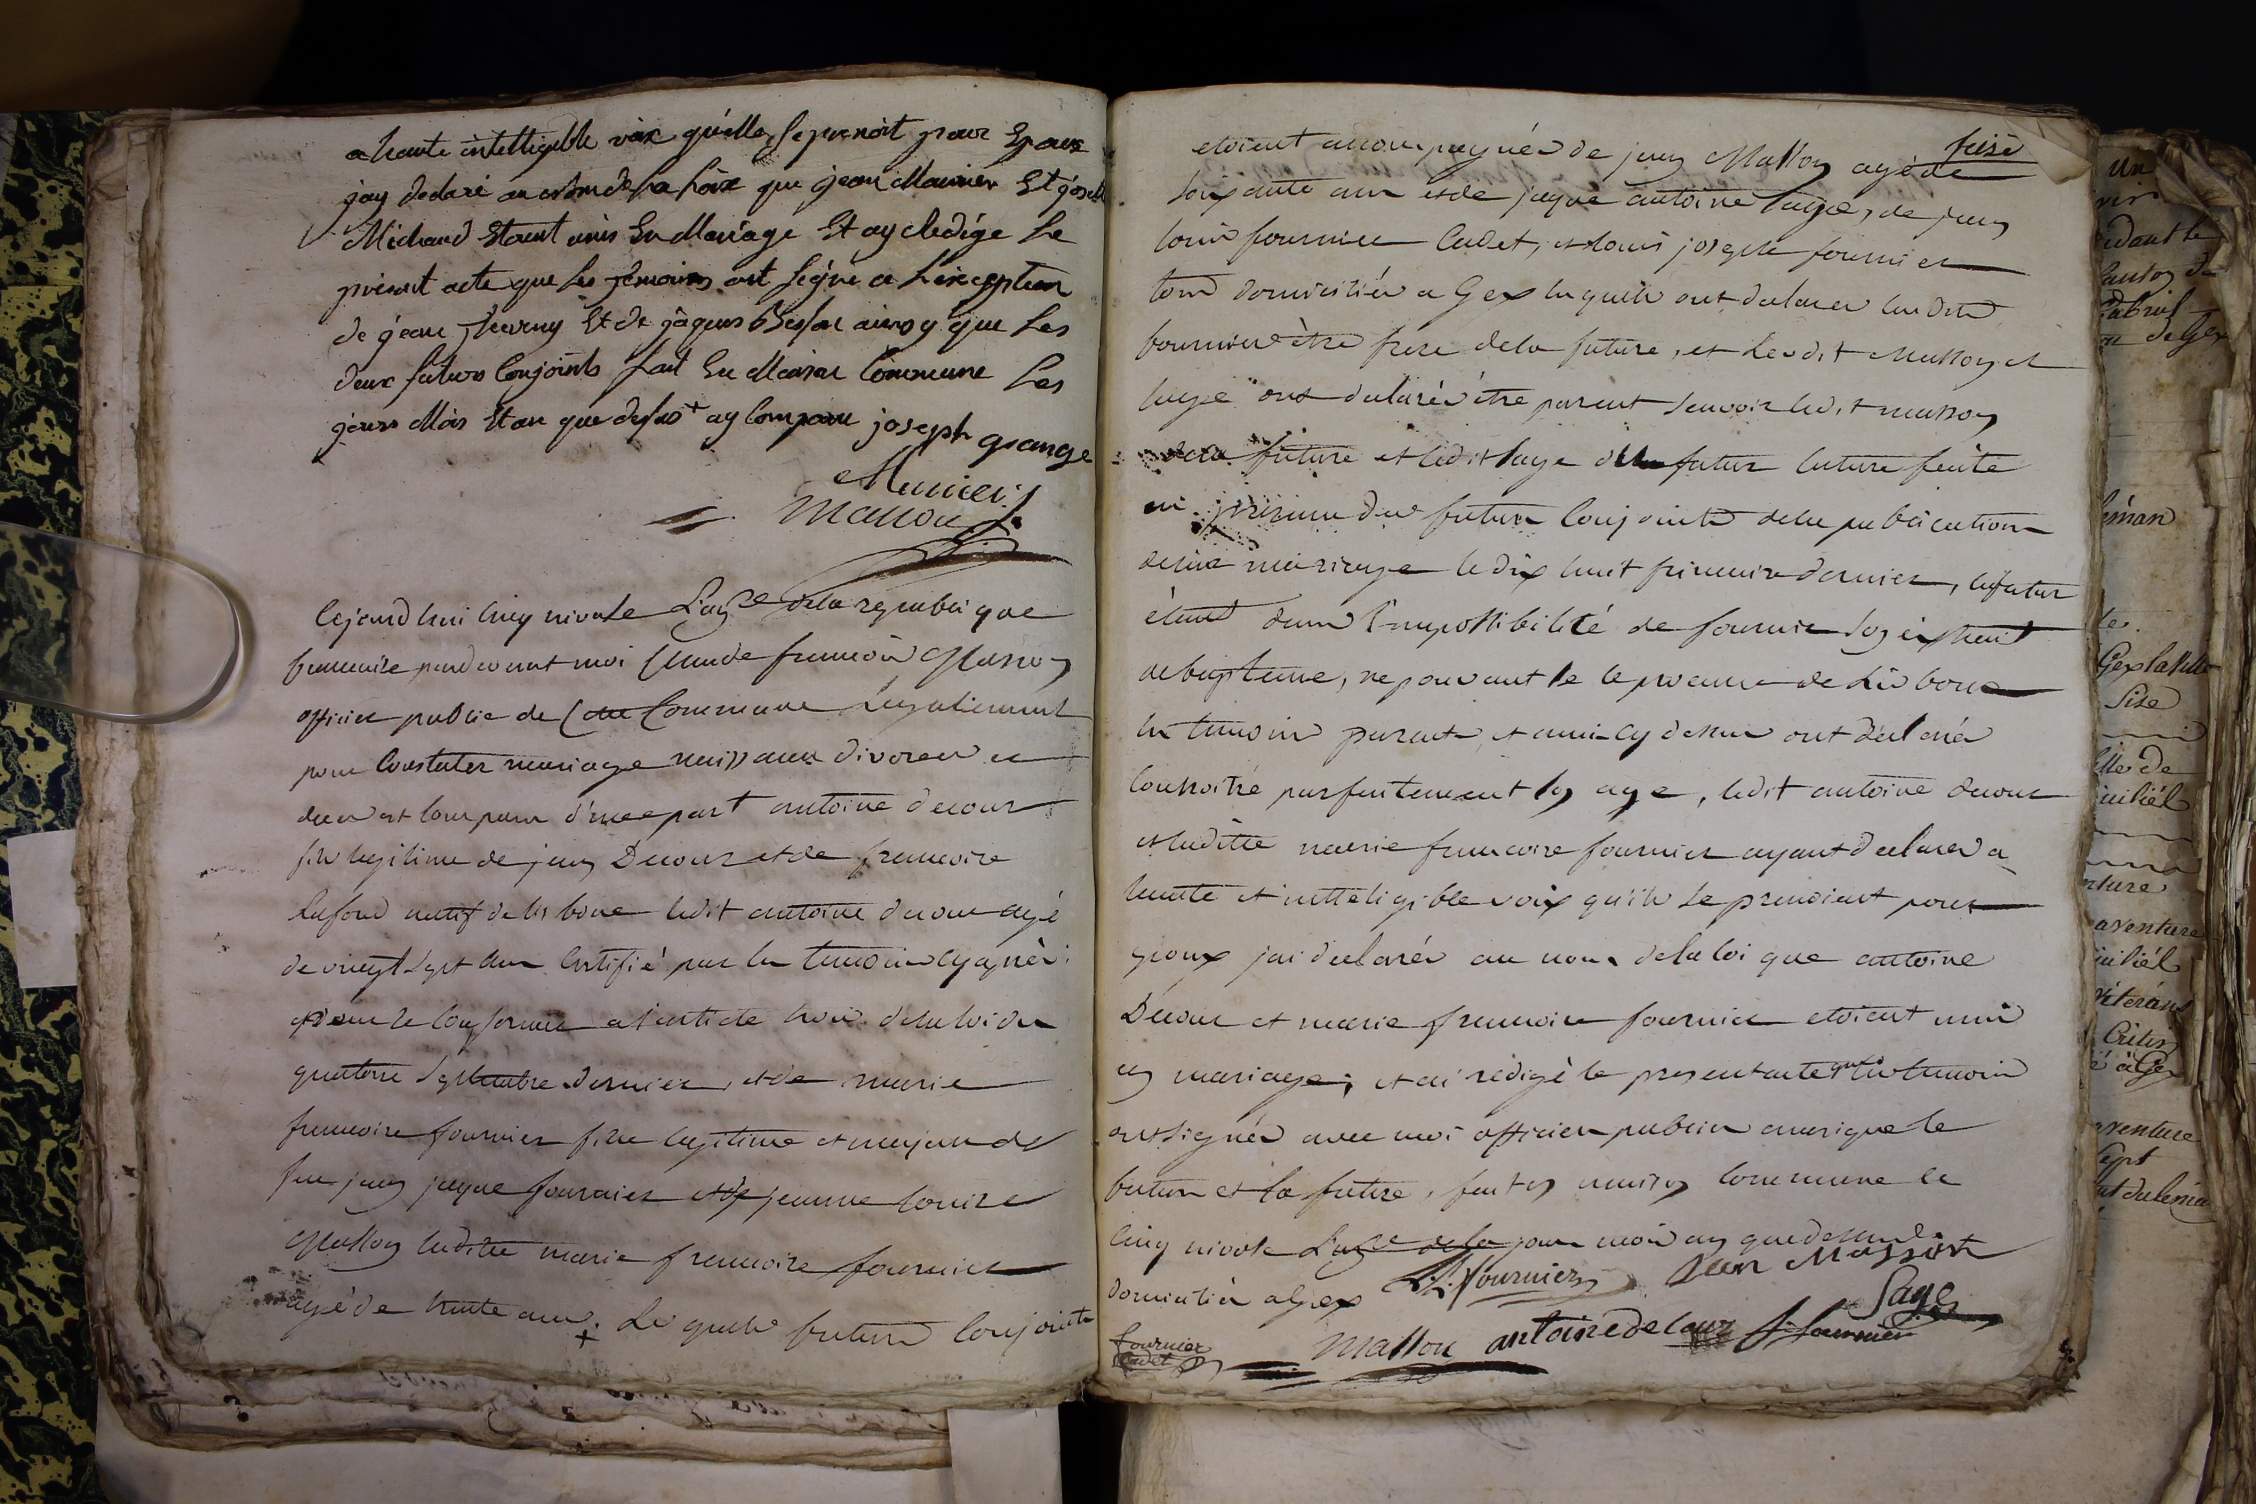 a haute intelligible voix qu'elle se prenoit pour Epoux
jay declaré au nom de la loix que jean Maunier Et josette
Michaud Etoint unis En Mariage Et ay redigé le
present acte que les temoins ont signé a l'exception
de jean Et de jaques ainsy que les
deux futurs Conjoints fait En Maison Commune les
jours Mois Et an que dessus + ay Comparu joseph grange
Munier
Masson
Cejourd'hui cinq nivose L'an 2e dela republique
francaise pardevant moi Claude francois Masson
officier public de Commune legalement
pour Constater mariage naissances divorces et
deces est comparu d'une part antoine decour
fils legitime de jean Decour et de francoise
Lafond natif de lisbone ledit antoine decour agé
de vingt sept ans Certifié par les temoins cy après
pour se conformer a l'article trois dela loi du
quatorse septembre dernier, et de marie
francoise fournier fille legitime et majeure de
feu jean jaque fournier et de jeanne louise
Masson laditte marie francoise fournier
agé de trente ans. + Le quels futurs Conjoints
etoient accompagnés de jean Masson agé de
soixante ans et de jaque antoine sage, de jean
louis fournier Cadet, et louis joseph fournier
tous domiciliés a Gex lesquels ont declarer lesdits
fournier être frere dela future, et Ledit Masson et
sage ont declarés être parent sçavoir ledit masson
dela future et ledit sage du futur lecture faite
en présence des futurs Conjoints dela publication
de leur mariage le dix huit frimaire dernier, le futur
étant dans l'impossibilité de fournir son extrait
de bapteme, ne pouvant se le procurer de Lisbone
les temoins parents et amis cy dessus ont déclarés
connoitre parfaitement son age, ledit antoine decour
et laditte marie francoise fournier ayant declarer a
haute et inteligible voix qu'ils se prenoient pour
epoux jai declarés au nom dela loi que antoine
Decour et marie francoise fournier etoient unis
en mariage; et ai rédigé le present acte que les temoins
ont signés avec moi officier public ainsi que le
futur et la future, fait en maison commune le
cinq nivose L'an 2e de la jour mois an que dessus
domicilié a Gex L. J. fournier Jean Masson
Sage
Masson antoine decour J. fournier
fournier
Cadet